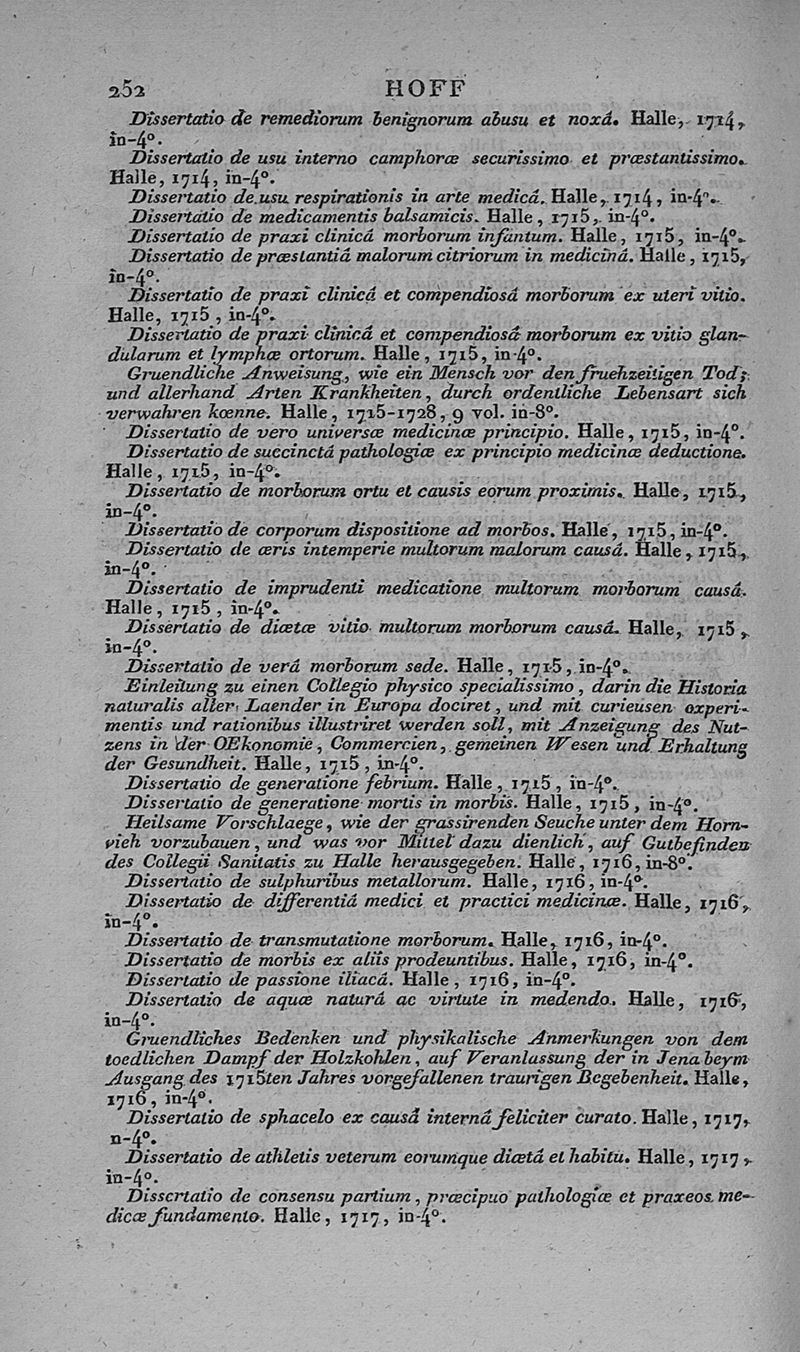 252
HOFF
Dissertatio de remediorum benignorum abusu et noxâ. Halle, 1714,
in-4°.
Dissertatio de usu interno camphoræ securissimo et præstantissimo.
Halle, 1714, in-4°.
Dissertatio de usu respirationis in arte medicâ. Halle, 1714, in-4°.
Dissertatio de medicamentis balsamicis. Halle, 1715, in-4°.
Dissertatio de praxi clinicâ morborum infantum. Halle, 1715, in-4°.
Dissertatio de præstantiâ malorum citriorum in medicinâ. Halle, 1715,
in-4°.
Dissertatio de praxi clinicâ et compendiosâ morborum ex uteri vitio.
Halle, 1715, in-4°.
Dissertatio de praxi clinicâ et compendiosâ morborum ex vitio glan-
dularum et lymphæ ortorum. Halle, 1715, in-4°.
Gruendliche Anweisung, wie ein Mensch vor den fruehzeitigen Tod;
und allerhand Arten Krankheiten, durch ordentliche Lebensart sich
verwahren kœnne. Halle, 1715-1728, 9 vol. in-8°.
Dissertatio de vero universæ medicinæ principio. Halle, 1715, in-4°.
Dissertatio de succinctâ pathologiæ ex principio medicinæ deductione.
Halle, 1715, in-4°.
Dissertatio de morborum ortu et causis eorum proximis. Halle, 1715,
in-4°.
Dissertatio de corporum dispositione ad morbos. Halle, 1715, in-4°.
Dissertatio de æris intemperie multorum malorum causâ. Halle, 1715,
in-4°.
Dissertatio de imprudenti medicatione multorum morborum causâ.
Halle, 1715, in-4°.
Dissertatio de diætæ vitio multorum morborum causâ. Halle, 1715,
in-4°.
Dissertatio de verâ morborum sede. Halle, 1715, in-4°.
Einleitung zu einen Collegio physico specialissimo, darin die Historia
naturalis aller Laender in Europa dociret, und mit curieusen experi-
mentis und rationibus illustriret werden soll, mit Anzeigung des Nut-
zens in der OEkonomie, Commercien, gemeinen Wesen und Erhaltung
der Gesundheit. Halle, 1715, in-4°.
Dissertatio de generatione febrium. Halle, 1715, in-4°.
Dissertatio de generatione mortis in morbis. Halle, 1715, in-4°.
Heilsame Vorschlaege, wie der grassirenden Seuche unter dem Horn-
vieh vorzubauen, und was vor Mittel dazu dienlich, auf Gutbefinden
des Collegii Sanitatis zu Halle herausgegeben. Halle, 1716, in-8°.
Dissertatio de sulphuribus metallorum. Halle, 1716, in-4°.
Dissertatio de differentiâ medici et practici medicinæ. Halle, 1716,
in-4°.
Dissertatio de transmutatione morborum. Halle, 1716, in-4°.
Dissertatio de morbis ex aliis prodeuntibus. Halle, 1716, in-4°.
Dissertatio de passione iliacâ. Halle, 1716, in-4°.
Dissertatio de aquæ naturâ ac virtute in medendo. Halle, 1716,
in-4°.
Gruendliches Bedenken und physikalische Anmerkungen von dem
toedlichen Dampf der Holzkohlen, auf Veranlassung der in Jena beym
Ausgang des 1715ten Jahres vorgefallenen traurigen Begebenheit. Halle,
1716, in-4°.
Dissertatio de sphacelo ex causâ internâ feliciter curato. Halle, 1717,
n-4°.
Dissertatio de athletis veterum eorumque diætâ et habitu. Halle, 1717,
in-4°.
Dissertatio de consensu partium, præcipuo pathologiæ et praxeos me-
dicæ fundamento. Halle, 1717, in-4°.